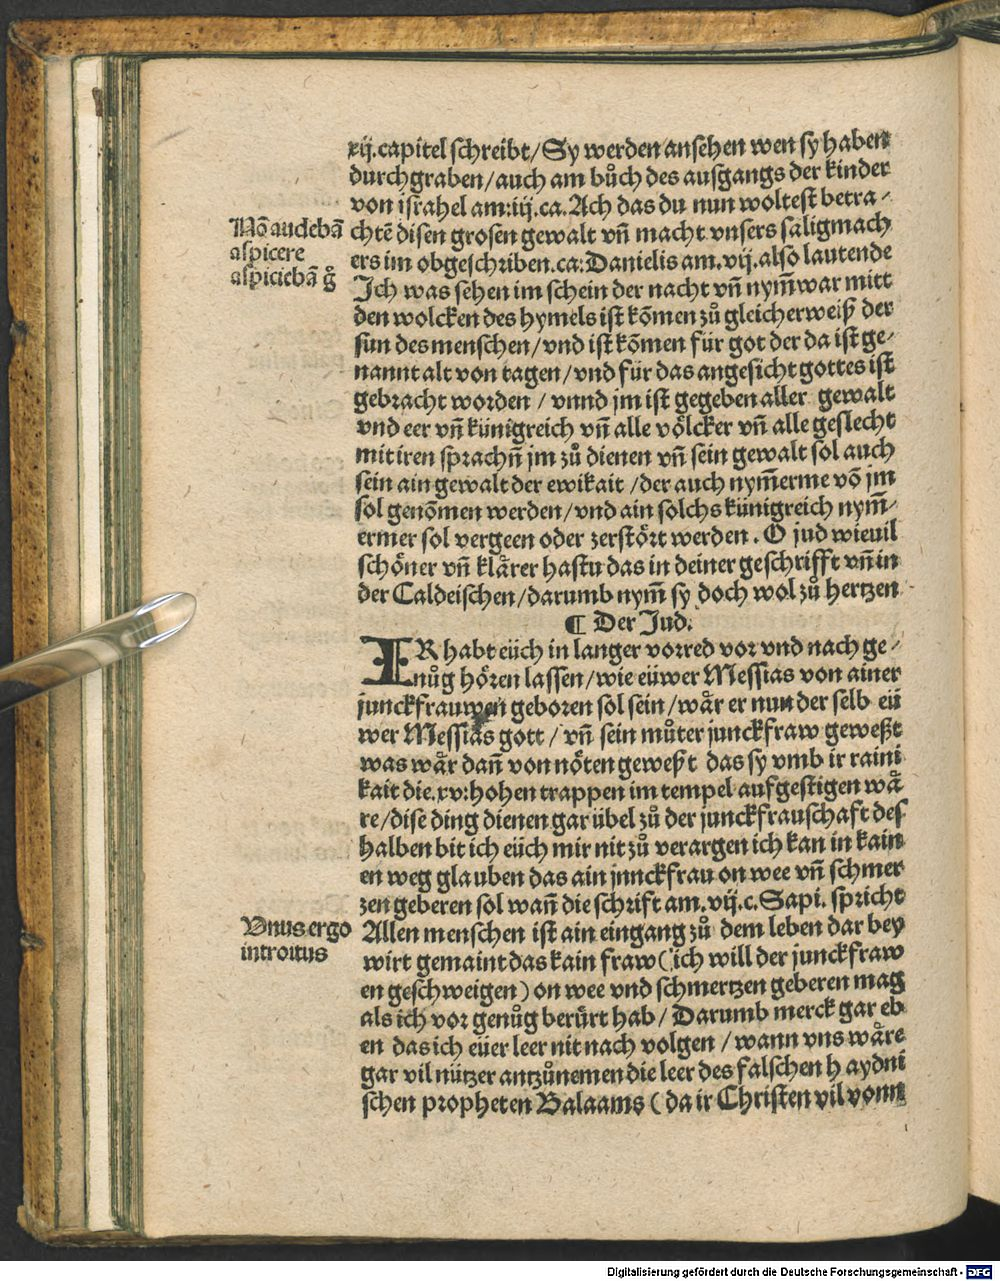 xij.capitel schreibt/Sy werden ansehen wen sy haben
durchgraben/auch am bůch des ausgangs der kinder
von israhel am:iij.ca.Ach das du nun woltest betra-
Nō audebā
aspicere
aspiciebā gͦ
chtē disen grosen gewalt vn̄ macht vnsers saligmach
ers im obgeschriben.ca:Danielis am.vij.also lautende
Ich was sehen im schein der nacht vn̄ nym̄war mitt
den wolcken des hymels ist kōmen zů gleicherweiß der
sun des menschen/vnd ist kōmen für got der da ist ge-
nannt alt von tagen/vnd für das angesicht gottes ist
gebracht worden / vnnd jm ist gegeben aller gewalt
vnd eer vn̄ künigreich vn̄ alle völcker vn̄ alle geslecht
mit iren sprachn̄ jm zů dienen vn̄ sein gewalt sol auch
sein ain gewalt der ewikait /der auch nym̄erme vō jm
sol genōmen werden/vnd ain solchs künigreich nym̄-
ermer sol vergeen oder zerstört werden. O jud wieuil
schöner vn̄ klårer hastu das in deiner geschrifft vn̄ in
der Caldeischen/darumb nym̄ sy doch wol zů hertzen
¶ Der Jud.
IR habt eüch in langer vorred vor vnd nach ge-
nůg hören lassen/wie eüwer Messias von ainer
junckfrauwen geboren sol sein/wår er nun der selb eü
wer Messias gott / vn̄ sein můter junckfraw geweßt
was wår dan̄ von nöten geweßt das sy vmb ir raini
kait die.xv:hohen trappen im tempel aufgestigen wå
re/dise ding dienen gar übel zů der junckfrauschaft des
halben bit ich eüch mir nit zů verargen ich kan in kain
en weg glauben das ain jnnckfrau on wee vn̄ schmer
zen geberen sol wan̄ die schrift am.vij.c.Sapi. spricht
Vnus ergo
introitus
Allen menschen ist ain eingang zů dem leben dar bey
wirt gemaint das kain fraw(ich will der junckfraw
en geschweigen) on wee vnd schmertzen geberen mag
als ich vor genůg berürt hab / Darumb merck gar eb
en das ich eüer leer nit nach volgen / wann vns wåre
gar vil nützer antzůnemen die leer des falschen haydni
schen propheten Balaams (da ir Christen vil vonn
Digitalisierung gefördert durch die Deutsche Forschungsgemeinschaft - DFG